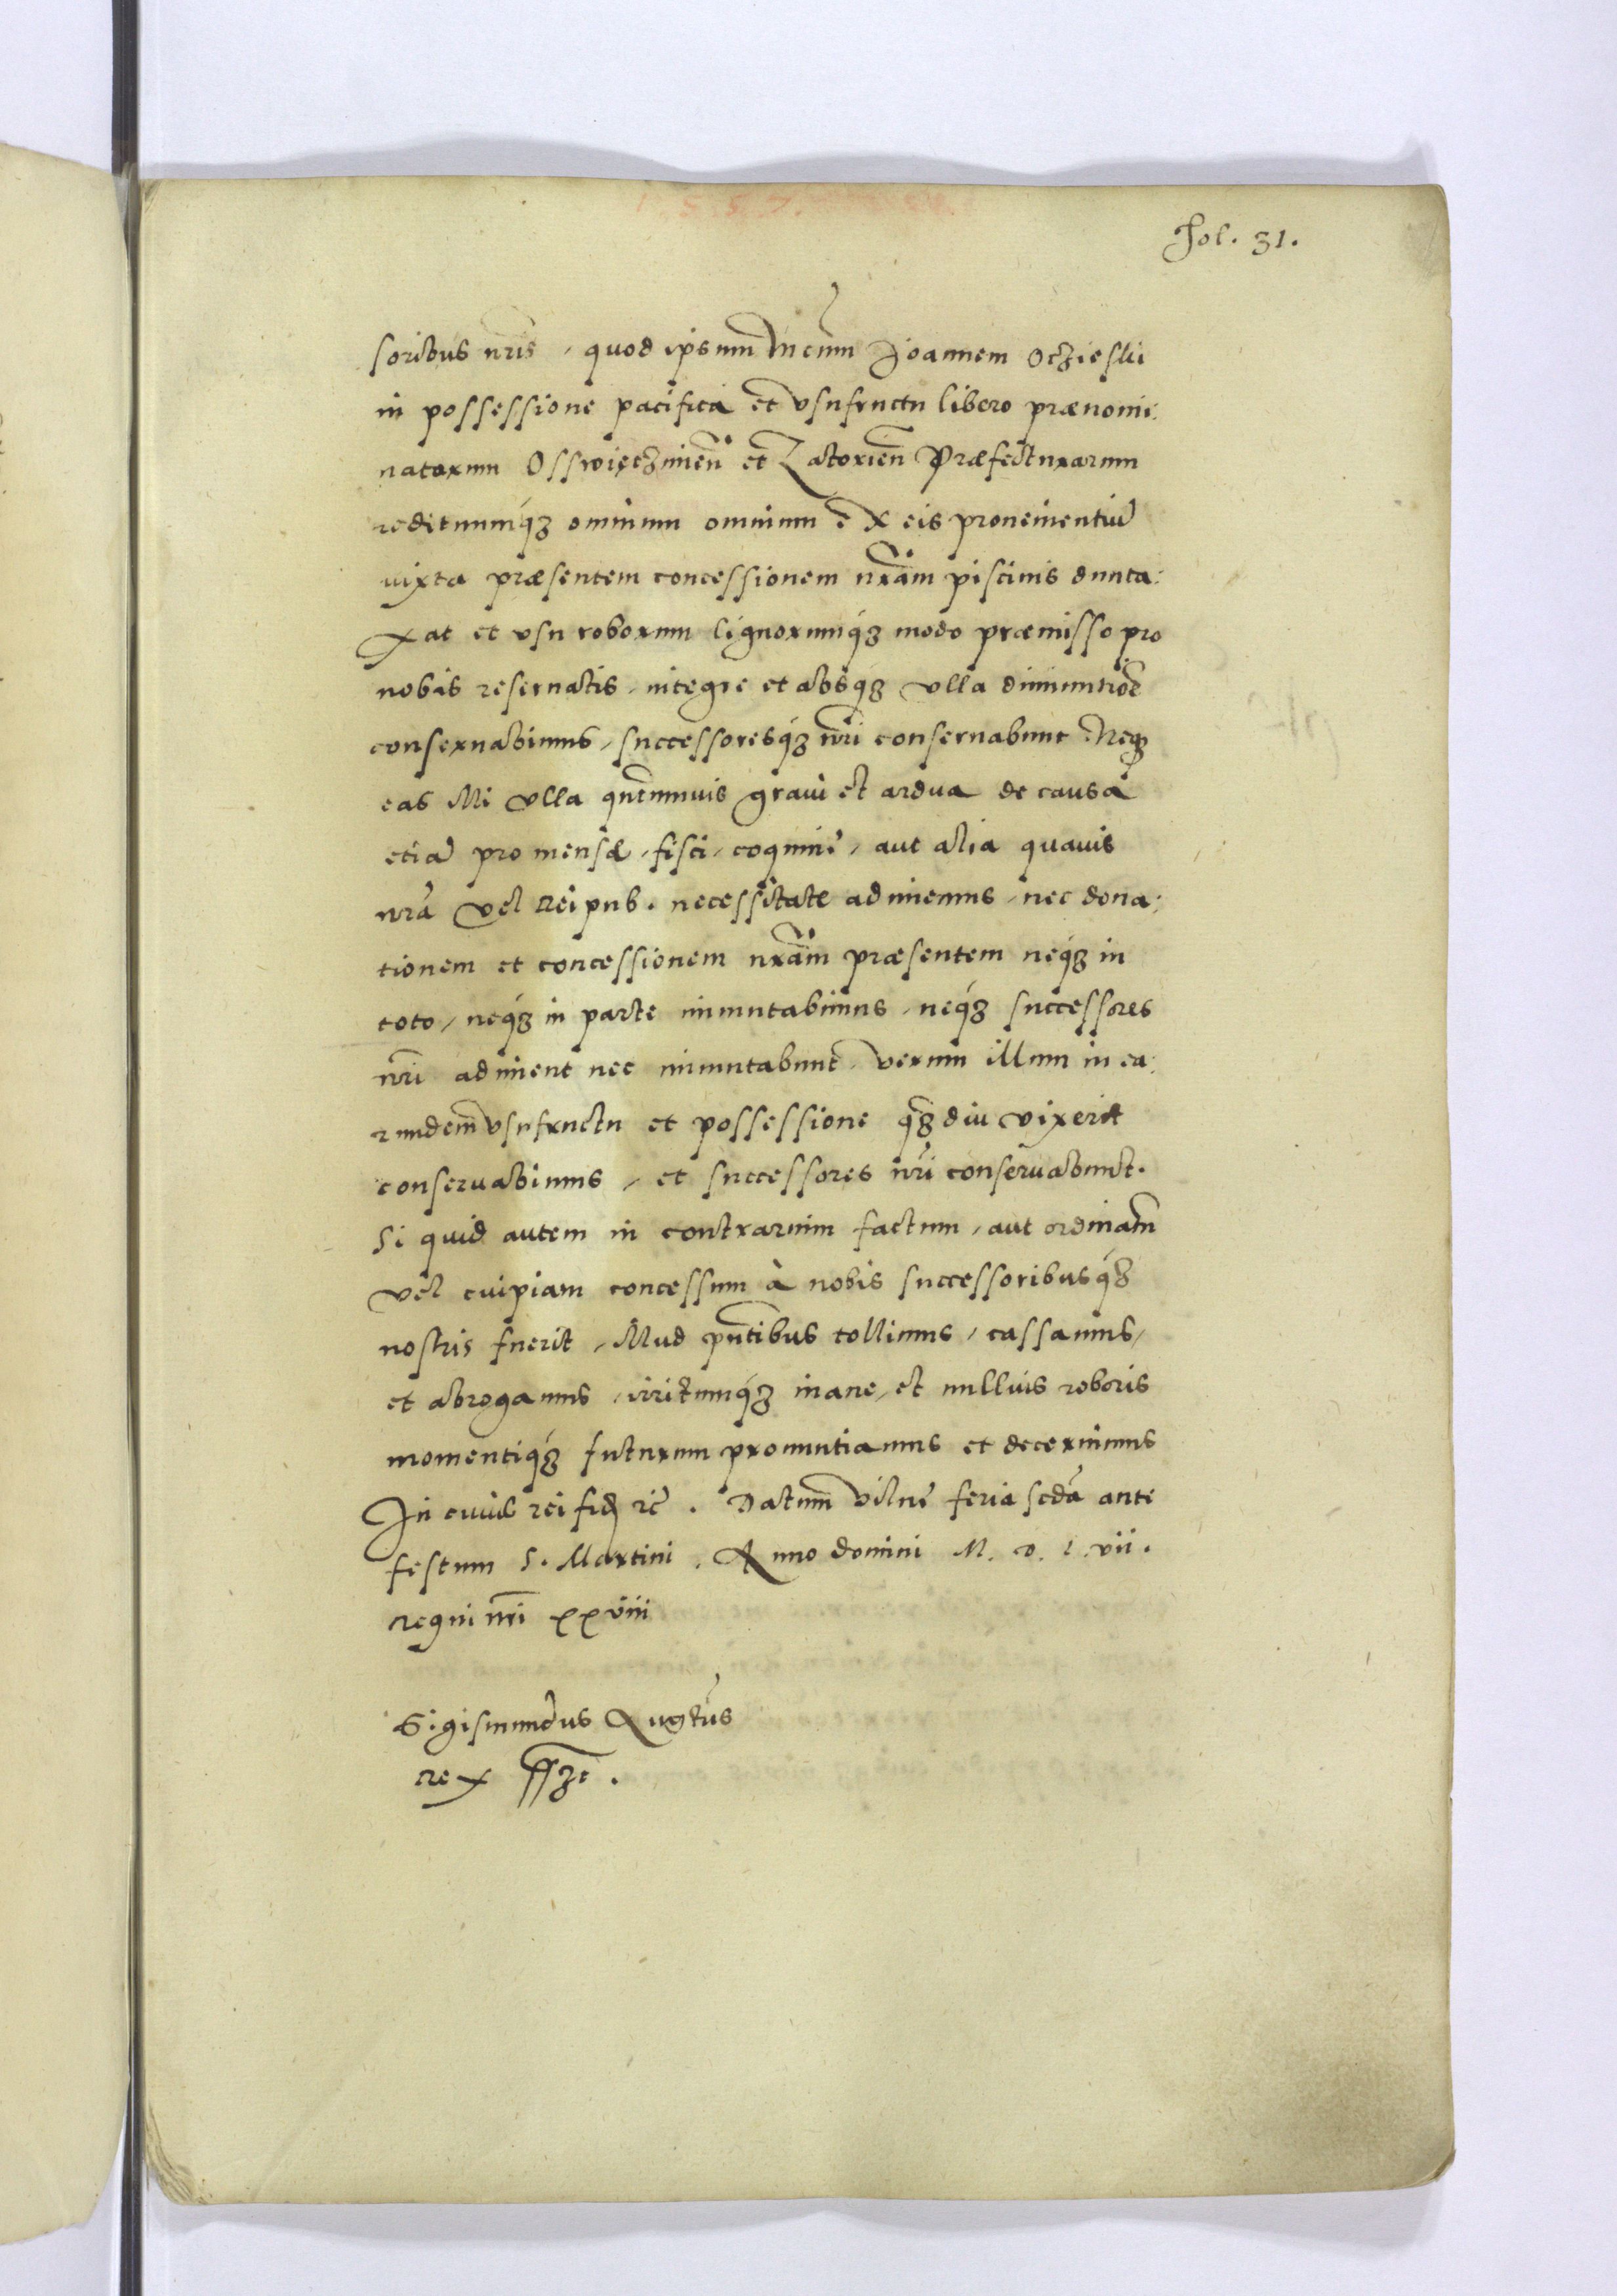 1.5.5.7.
Fol. 31.
soribus nrīs, quod ipsum Mcum̄ Joannem Oczieski
in possessione pacifica et vsufructu libero prænomi:
natarum Osswięczimen̄ et Zatorien̄ Præfecturarum
redituumq́ꝫ omnium omnium ex eis prouenientiū
iuxta præsentem concessionem nrām piscinis dunta:
xat et vsu roborum lignorumq́ꝫ modo præmisso pro
nobis reseruatis, integre et absq́ꝫ vlla diminutiōe
conseruabimus, successoresq́ꝫ nrī conseruabunt. Neqꝫ
eas illi vlla quantumuis graui et ardua de causa
etiā pro mensæ, fisci, coquinę, aut alia quauis
nrā vel Reipub. necessitate adimemus, nec dona:
tionem et concessionem nrām præsentem neq́ꝫ in
toto, neq́ꝫ in parte immutabimus, neq́ꝫ successores
nrī adiment nec immutabunt, verum illum in ea:
rundem vsufructu et possessione qꝫdiu vixerit
conseruabimus, et successores nrī conseruabunt.
Si quid autem in contrarium factum, aut ordinatm̄
vel cuipiam concessum à nobis successoribusq́ꝫ
nostris fuerit, illud pn̄tibus tollimus, cassamus,
et abrogamus, irritumq́ꝫ inane, et nullius roboris
momentiq́ꝫ futurum pronuntiamus et decernimus
In cuius rei fidē rc̄. Datum Vilnę feria scdā ante
festum S. Martini. Anno domini M. D. L. vii.
Regni nrī xxviii
Sigismundus Augtūs
Rex sszt.